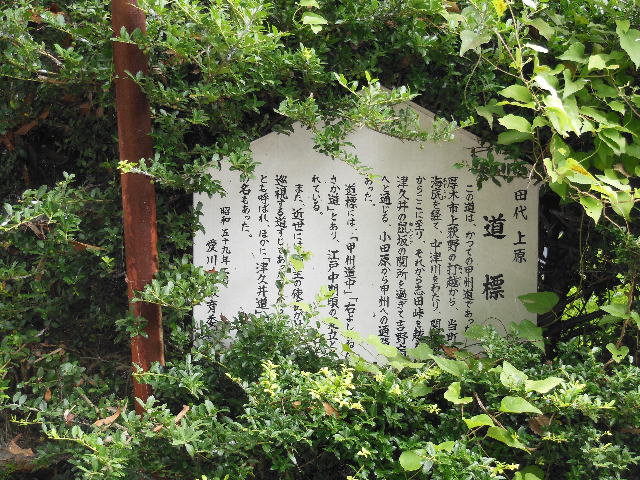 田代 上原
道標
この道は、かつての甲州道であっ
厚木市上荻野の打越から、当町
海底を経て、中津川をわたり、関
からここに至り、それから志田峠を越
津久井の鼠坂の関所を過ぎて吉野
へと通じる、小田原から甲州への通路
あった。
道標には、「甲州道中」「右よ
さか道」とあり、江戸中期頃の
れている。
また、近世には
巡視する道すじであっ
とも呼ばれ、ほかに「津久井道」
が名もあった。
昭和五十九年
愛川